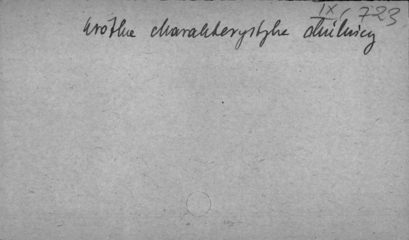 IX/723
krótka charakterystyka dzielnicy